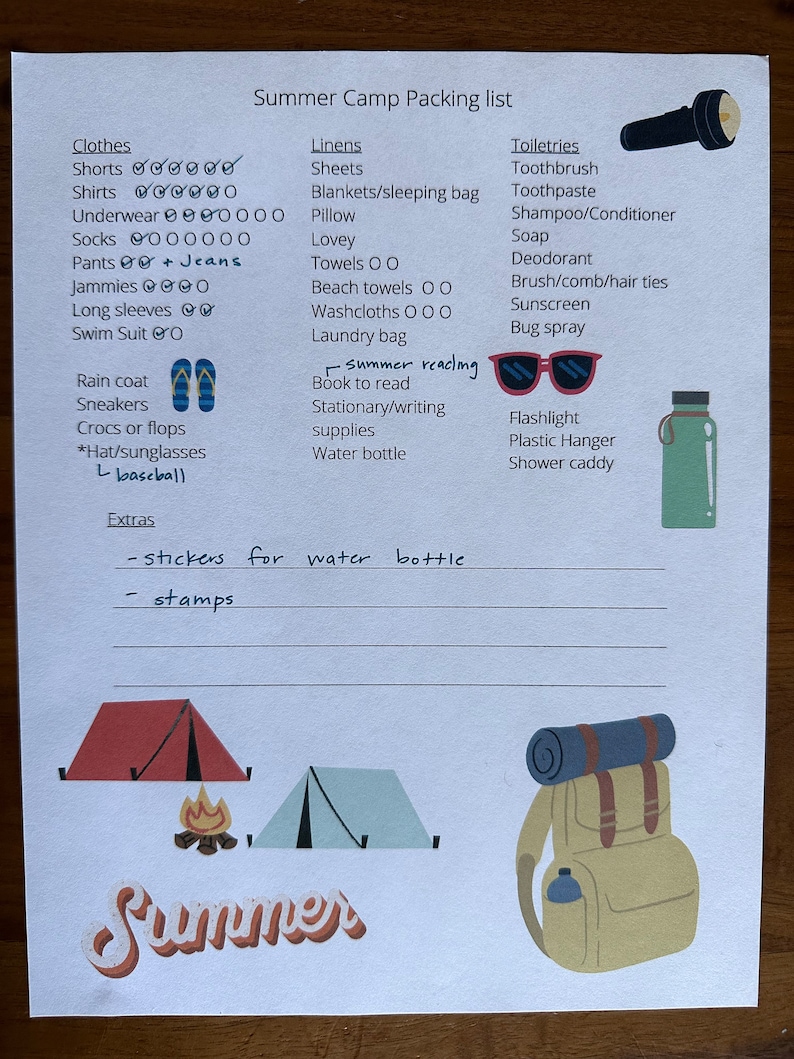 Summer Camp Packing list
Clothes
Shorts
Shirts
Underwear
Socks
Pants + Jeans
Jammies
Long sleeves
Swim Suit
Rain coat
Sneakers
Crocs or flops
*Hat/sunglasses
baseball
Linens
Sheets
Blankets/sleeping bag
Pillow
Lovey
Towels
Beach towels
Washcloths
Laundry bag
summer reading
Book to read
Stationary/writing
supplies
Water bottle
Toiletries
Toothbrush
Toothpaste
Shampoo/Conditioner
Soap
Deodorant
Brush/comb/hair ties
Sunscreen
Bug spray
Flashlight
Plastic Hanger
Shower caddy
Extras
- stickers for water bottle
- stamps
Summer